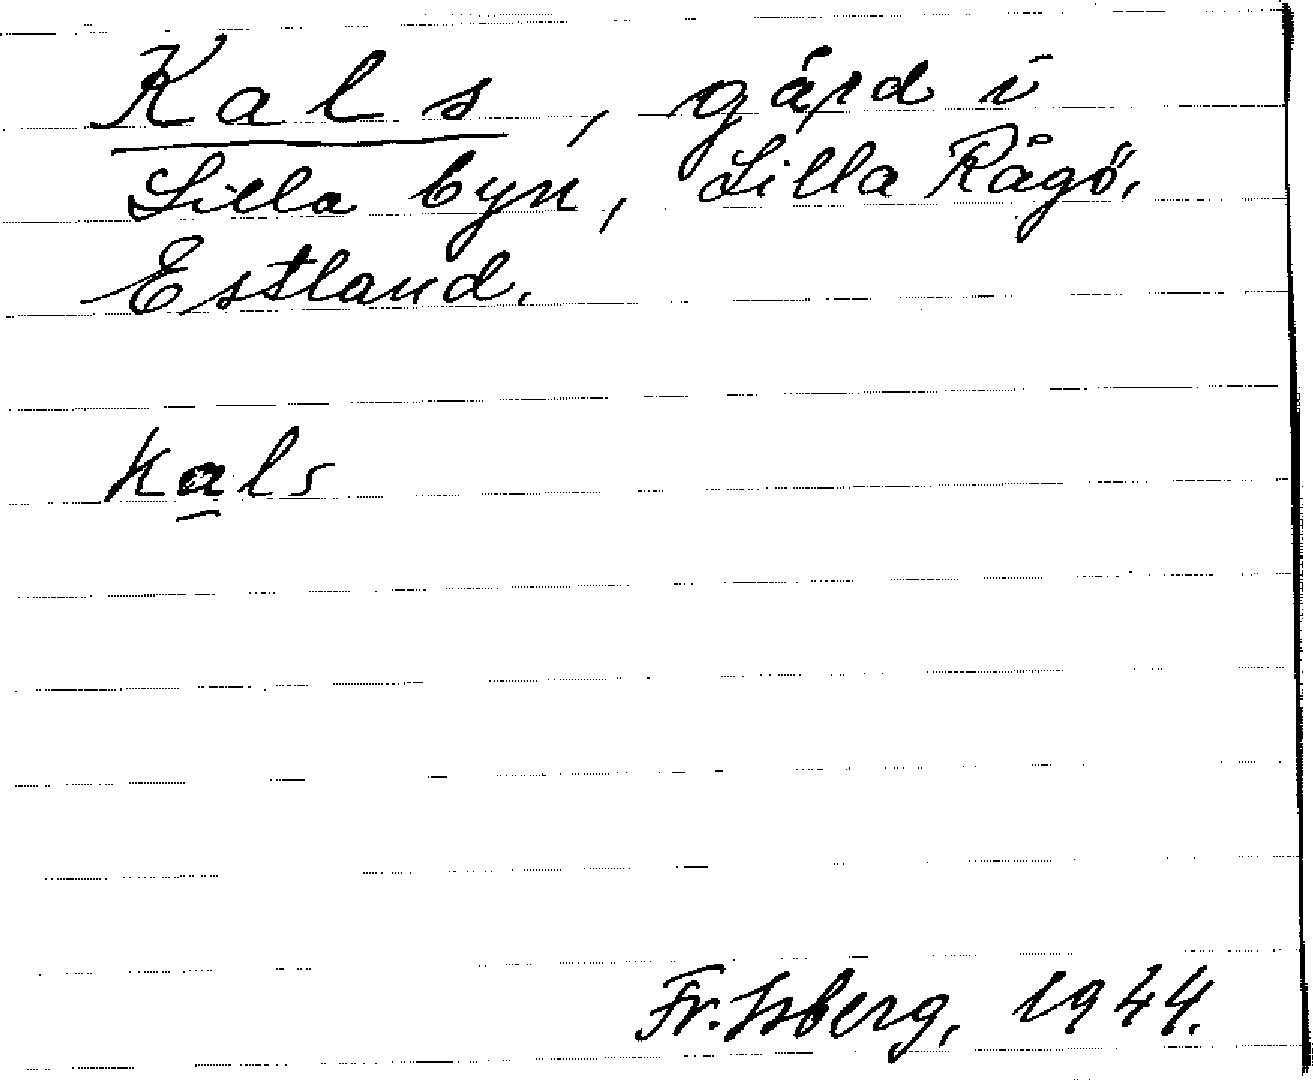 Kals, gård i
Lilla byn, Lilla Rågö,
Estland.
kals
Fr. Isberg, 1944.